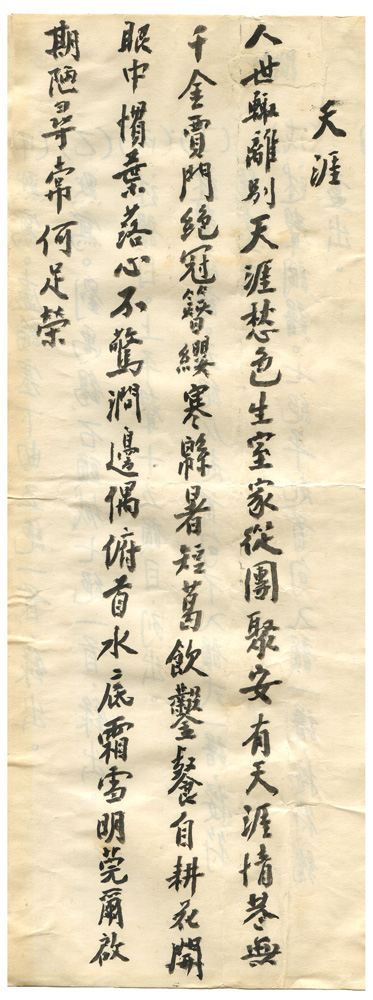 天涯
人世輙離别天涯愁色生室家從團聚安有天涯情巷無
千金賈門絶冠簪纓寒緜暑短葛飲鑿餐自耕花開
眼中慣葉落心不驚澗邊偶俯首水底霜雪明莞爾啟
期陋尋常何足榮